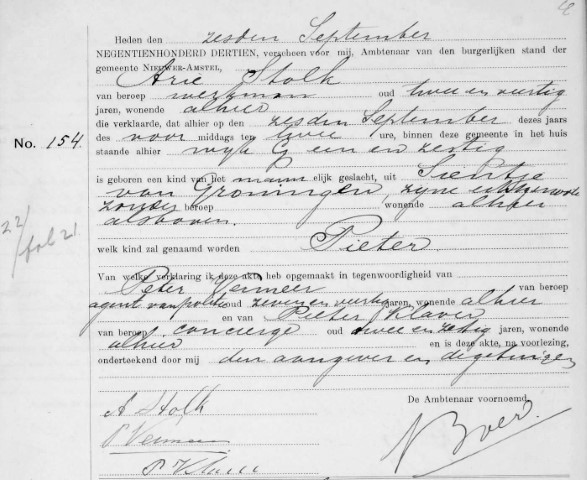 Heden den zesden September
NEGENTIENHONDERD DERTIEN, verscheen voor mij, Ambtenaar van den burgerlijken stand der
gemeente NIEUWER-AMSTEL,
Arie Stolk
van beroep werkman oud twee en veertig
jaren, wonende alhier
die verklaarde, dat alhier op den zesden September dezes jaars
No. 154.
des voor middags ten twee ure, binnen deze gemeente in het huis
staande alhier wyk G een en zestig
is geboren een kind van het mannelijk geslacht, uit Sientje
van Groningen zyne echtgenoote
zonder beroep wonende alhier
alsboven.
22/
fol 21
welk kind zal genaamd worden Pieter
Van welke verklaring ik deze akte heb opgemaakt in tegenwoordigheid van
Peter Vermeer van beroep
agent van politie oud zeven en veertig jaren, wonende alhier
en van Pieter Klaver
van beroep concierge oud twee en zestig jaren, wonende
alhier en is deze akte, na voorlezing,
onderteekend door mij den aangever en de getuigen
De Ambtenaar voornoemd.
A Stolk
P Vermeer
P Klaver
N Boer.